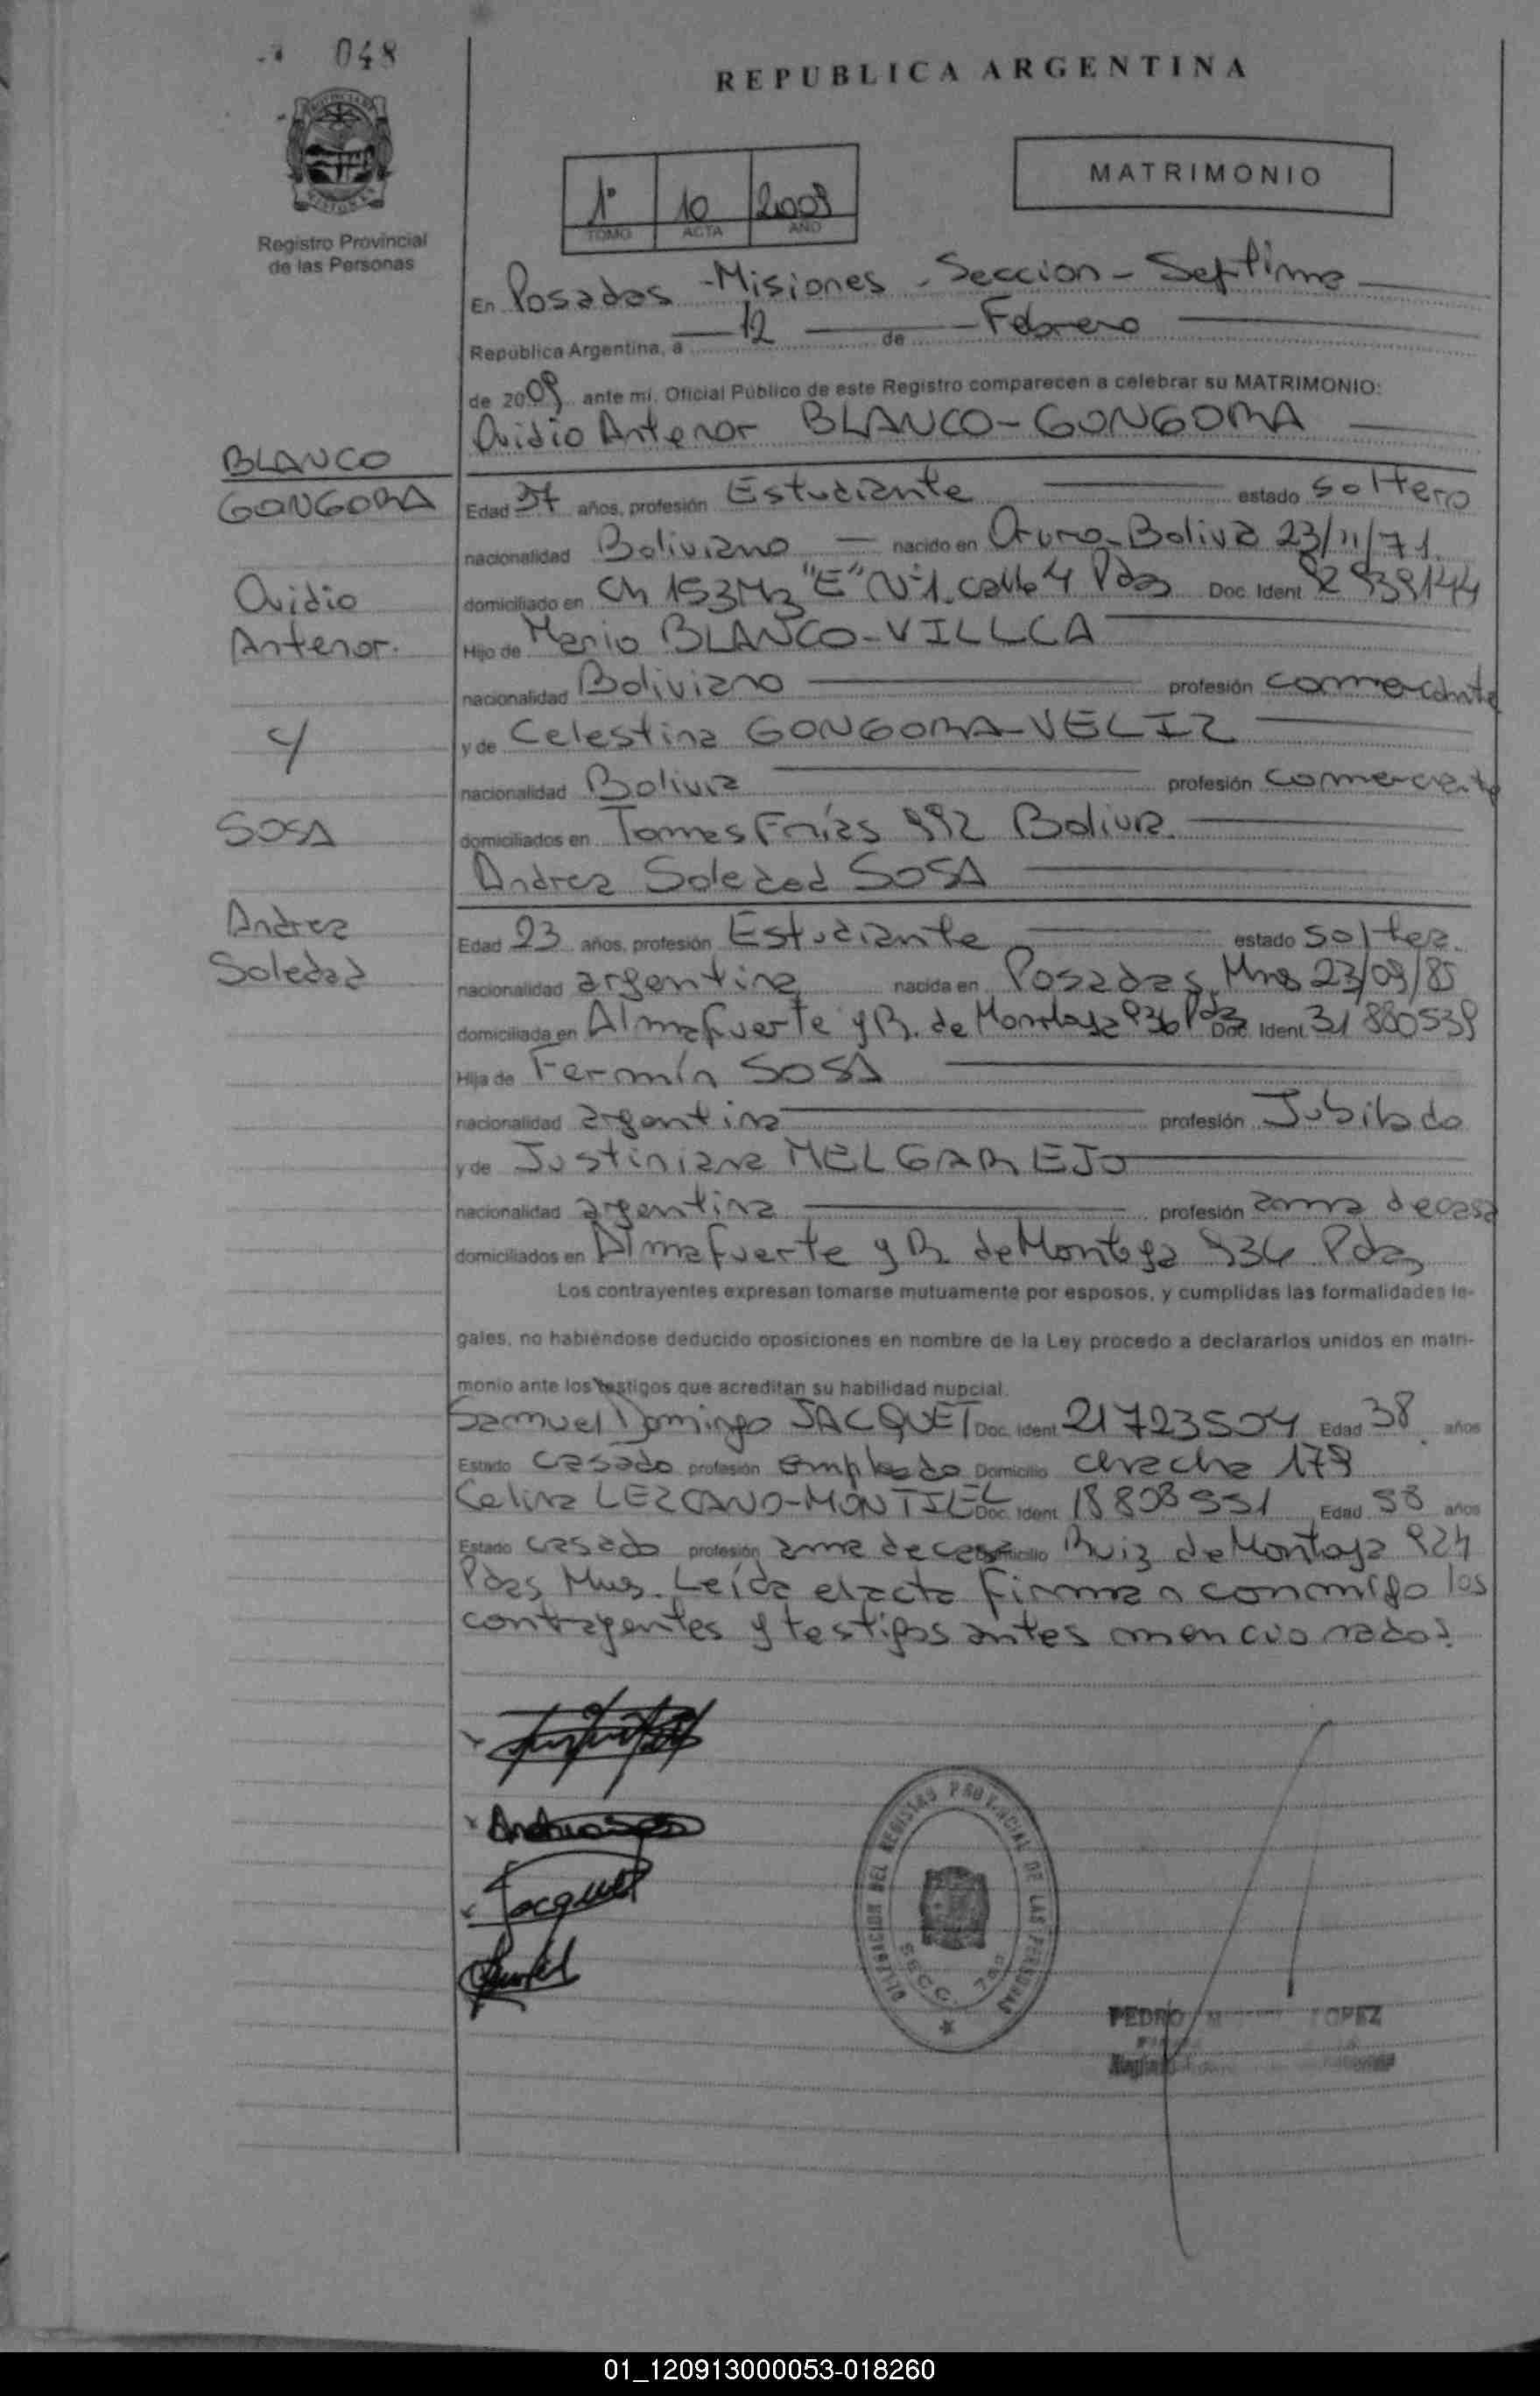 048
REPUBLICA ARGENTINA
Registro Provincial
de las Personas
1º 10 2009
TOMO ACTA AÑO
MATRIMONIO
En Posadas - Misiones - Seccion - Septima
República Argentina, a 12 de Febrero
de 2009 ante mí, Oficial Público de este Registro comparecen a celebrar su MATRIMONIO:
Ovidio Antenor BLANCO-GONGORA
BLANCO
GONGORA
Ovidio
Antenor.
y
SOSA
Andrea
Soledad
Edad 37 años, profesión Estudiante estado soltero
nacionalidad Boliviano nacido en Oruro-Bolivia 23/11/71
domiciliado en Ch 153 Mz "E" Nº1 calle 4 Pdas Doc. Ident 92 939144
Hijo de Mario BLANCO-VILLCA
nacionalidad Boliviano profesión comerciante
y de Celestina GONGORA-VELIZ
nacionalidad Bolivia profesión comerciante
domiciliados en Tomas Frías 992 Bolivia
Andrea Soledad SOSA
Edad 23 años, profesión Estudiante estado soltera
nacionalidad argentina nacida en Posadas, Mnes 23/09/85
domiciliada en Almafuerte y R. de Montoya 936 Pdas Doc. Ident. 31 880539
Hija de Fermín SOSA
nacionalidad argentina profesión Jubilado
y de Justiniana MELGAREJO
nacionalidad argentina profesión ama de casa
domiciliados en Almafuerte y R. de Montoya 936 Pdas
Los contrayentes expresan tomarse mutuamente por esposos, y cumplidas las formalidades le-
gales, no habiéndose deducido oposiciones en nombre de la Ley procedo a declararlos unidos en matri-
monio ante los testigos que acreditan su habilidad nupcial.
Samuel Domingo JACQUET Doc. Ident. 21723504 Edad 38 años
Estado casado profesión empleado Domicilio 179
Celina LEZCANO-MONTIEL Doc. Ident. 18808551 Edad 58 años
Estado casado profesión ama de casa Domicilio Ruiz de Montoya 924
Pdas Mnes. Leída el acta firman conmigo los
contrayentes y testigos antes mencionados
Jacquet
DELEGACION DEL REGISTRO PROVINCIAL DE LAS PERSONAS
SECC. 7ma
PEDRO LOPEZ
01_120913000053-018260